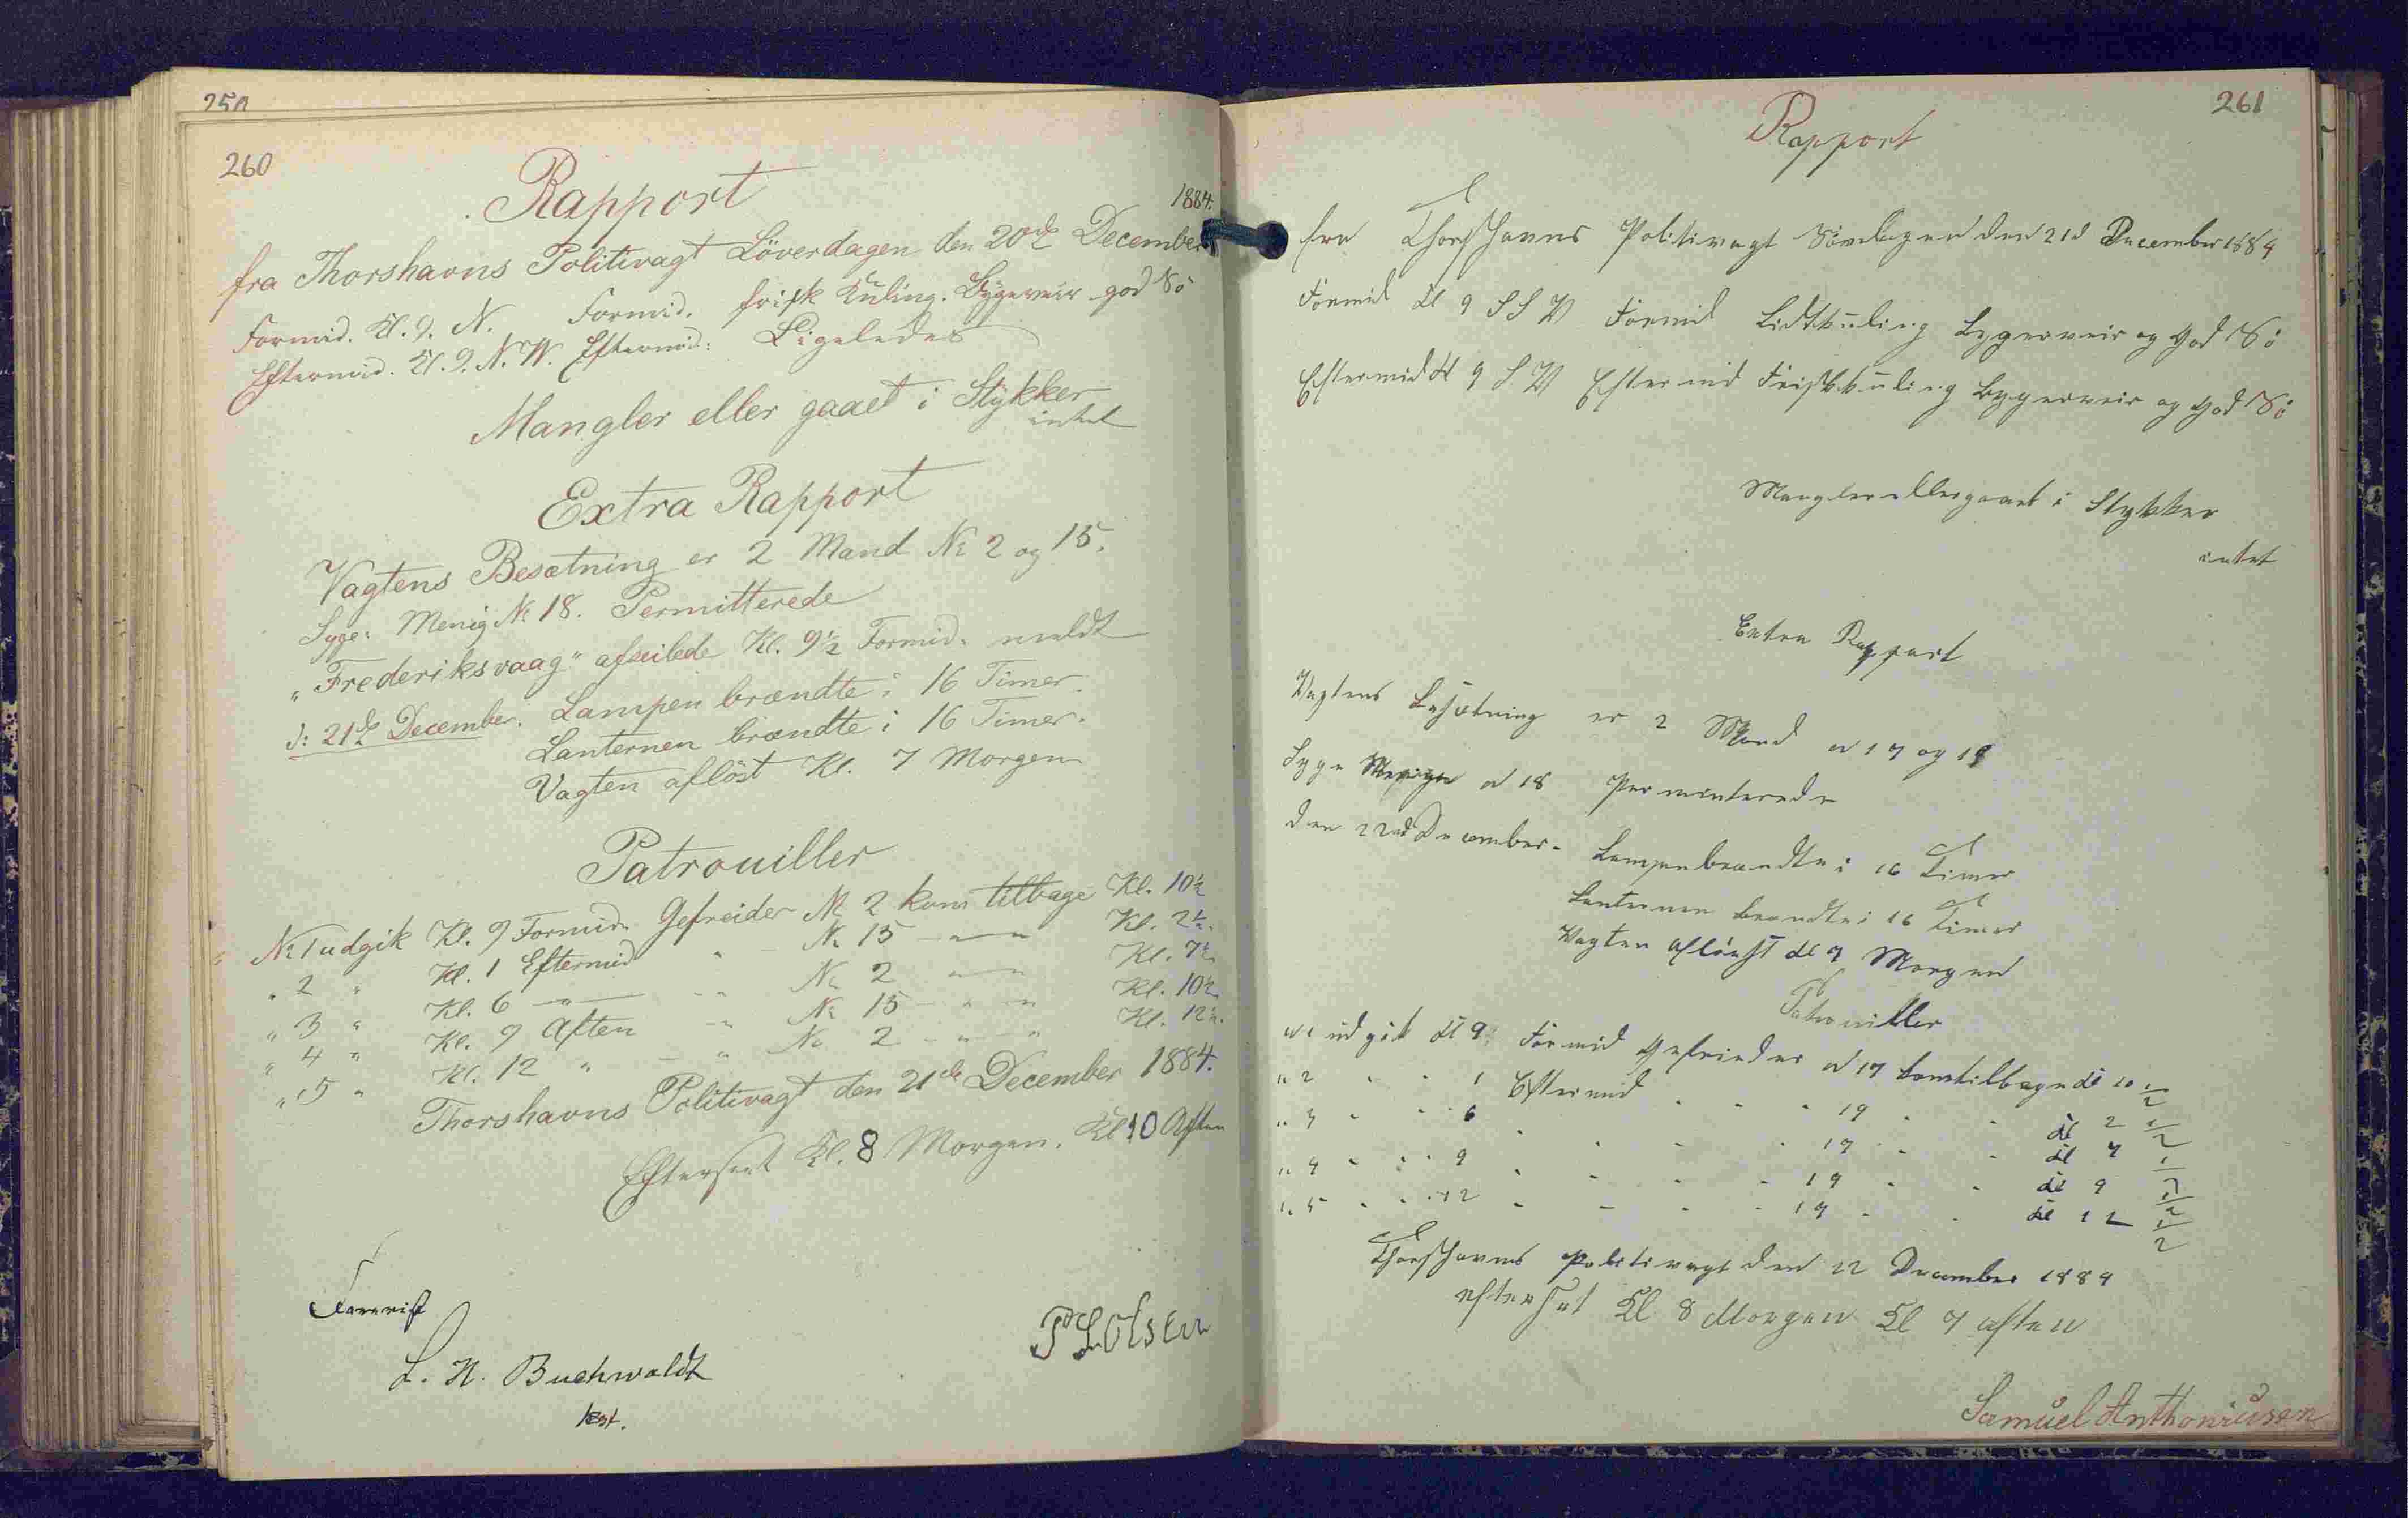 260
Rapport
1884.
fra Thorshavns Politivagt Löverdagen den 20de December
Formid. Kl. 9. N. Formid. frisk Kuling. Bygeveir god Sö
Eftermid. Kl. 9. N.W. Eftermid: Ligeledes
Mangler eller gaaet i Stykker
intet
Extra Rapport
Vagtens Besætning er 2 Mand No 2 og 15.
Syge: Menig No 18. Permitterede
"Frederiksvaag" afseilede Kl. 9½ Formid.
d: 21de December. Lampen brændte i 16 Timer.
Lanternen brændte i 16 Timer.
Vagten aflöst Kl. 7 Morgen
Patrouiller
No 1 udgik Kl. 9 Formid. Gefreider No 2 kom tilbage Kl. 10½
" 2 " Kl. 1 Eftermid " - No 15 - " - " Kl. 2½.
" 3 " Kl. 6 - " - - " No 2 - " - " Kl. 7½
" 4 " Kl. 9 Aften - " No 15 - " - " Kl. 10½
" 5 " Kl. 12 " - " No 2 - " - " Kl. 12½.
Thorshavns Politivagt den 21de December 1884.
Efterseet Kl. 8 Morgen. Kl 10 Aften
L. H. Buchwaldt
P Olsen
261
Rapport
fra Thorshavns Politivagt Söndagen den 21d December 1884
Formid Kl 9 S S V Formid Lidtkuling Bygerveir og God Sö
Eftermid Kl 9 S V Eftermid Friskkuling Bygerveir og God Sö
Mangler eller gaaet i Stykker
intet
Extra Rapport
Vagtens Besætning er 2 Mand No 17 og 19
Syge Menige No 18 Perminterede
den 22nd December. Lampen brændte i 16 Timer
Lanternen brændte i 16 Timer
Vagten aflöst Kl 7 Morgen
Patrouiller
No 1 udgik Kl 9 Formid Gefreider No 17 kom tilbage Kl 10 ½
" 2 " " 1 Eftermid " " " 19 " " Kl 2 ½
" 3 " " 6 " " " " 17 " " Kl 7 ½
" 4 " " 9 " " " " 19 " " Kl 9 ½
" 5 " " 12 " " " " 17 " " Kl 12 ½
Thorshavns Politivagt den 22 December 1884
efterset Kl 8 Morgen Kl 7 aften
Samuel Anthoniusen